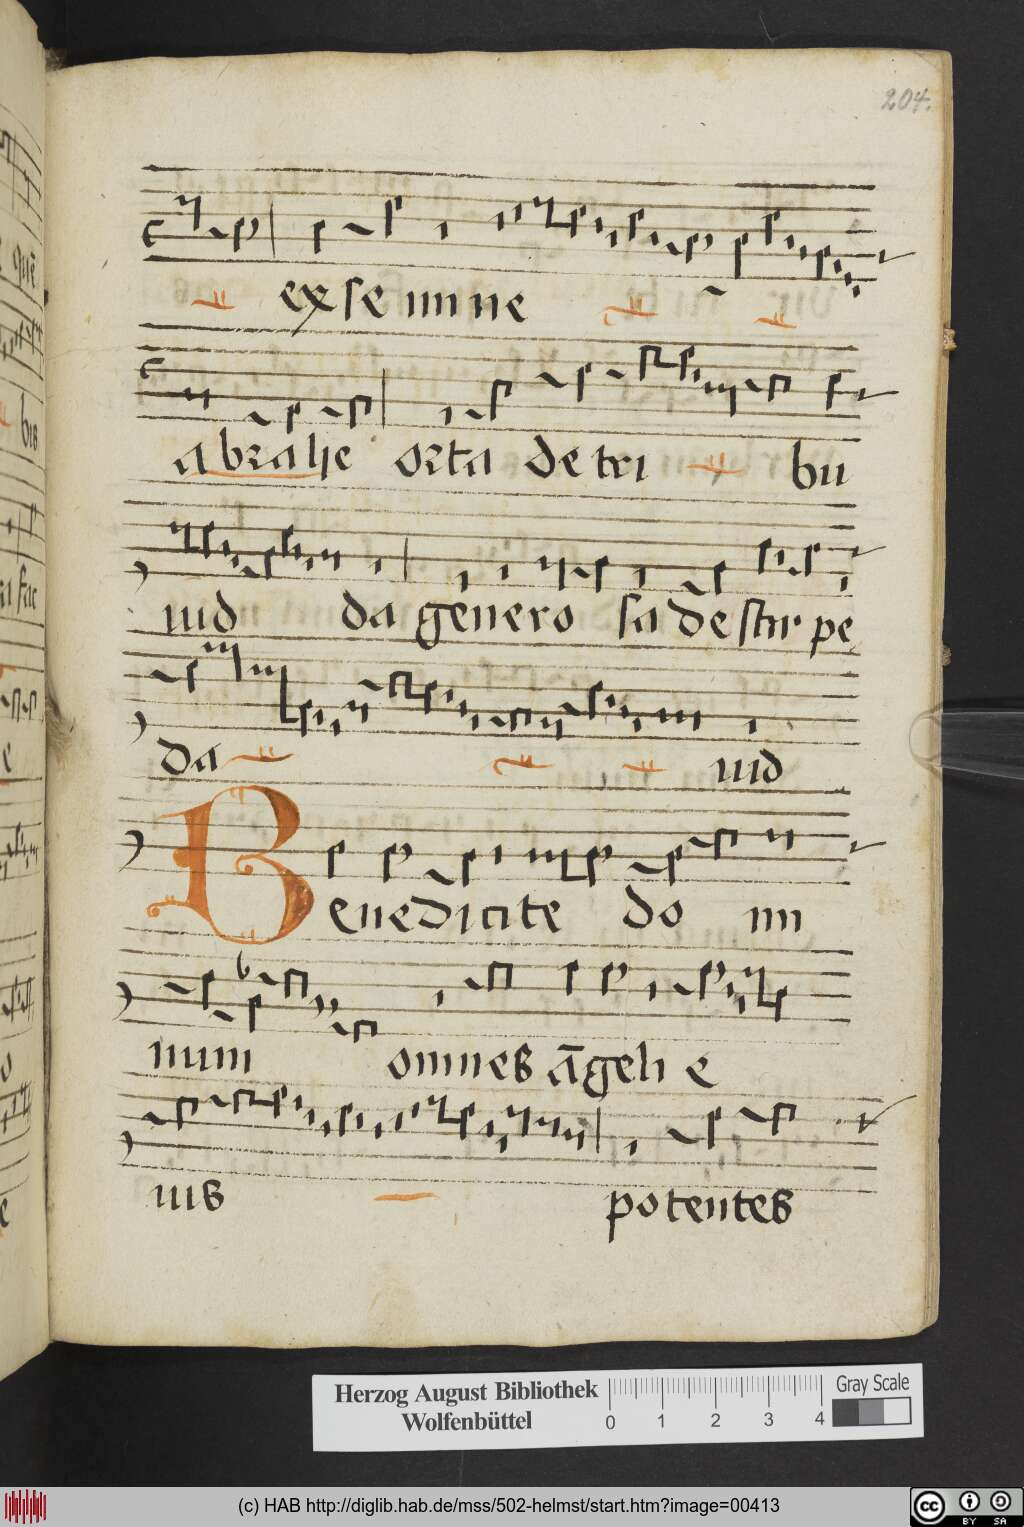 204.
ex se mi ne
abrahe orta de tri bu
iud da genero sa de stir pe
da uid
Benedicite do mi
num omnes āgeli e
ius potentes
quē
bis
e
o
e
Herzog August Bibliothek
Wolfenbüttel
0 1 2 3 4
Gray Scale
(c) HAB http://diglib.hab.de/mss/502-helmst/start.htm?image=00413
cc BY SA